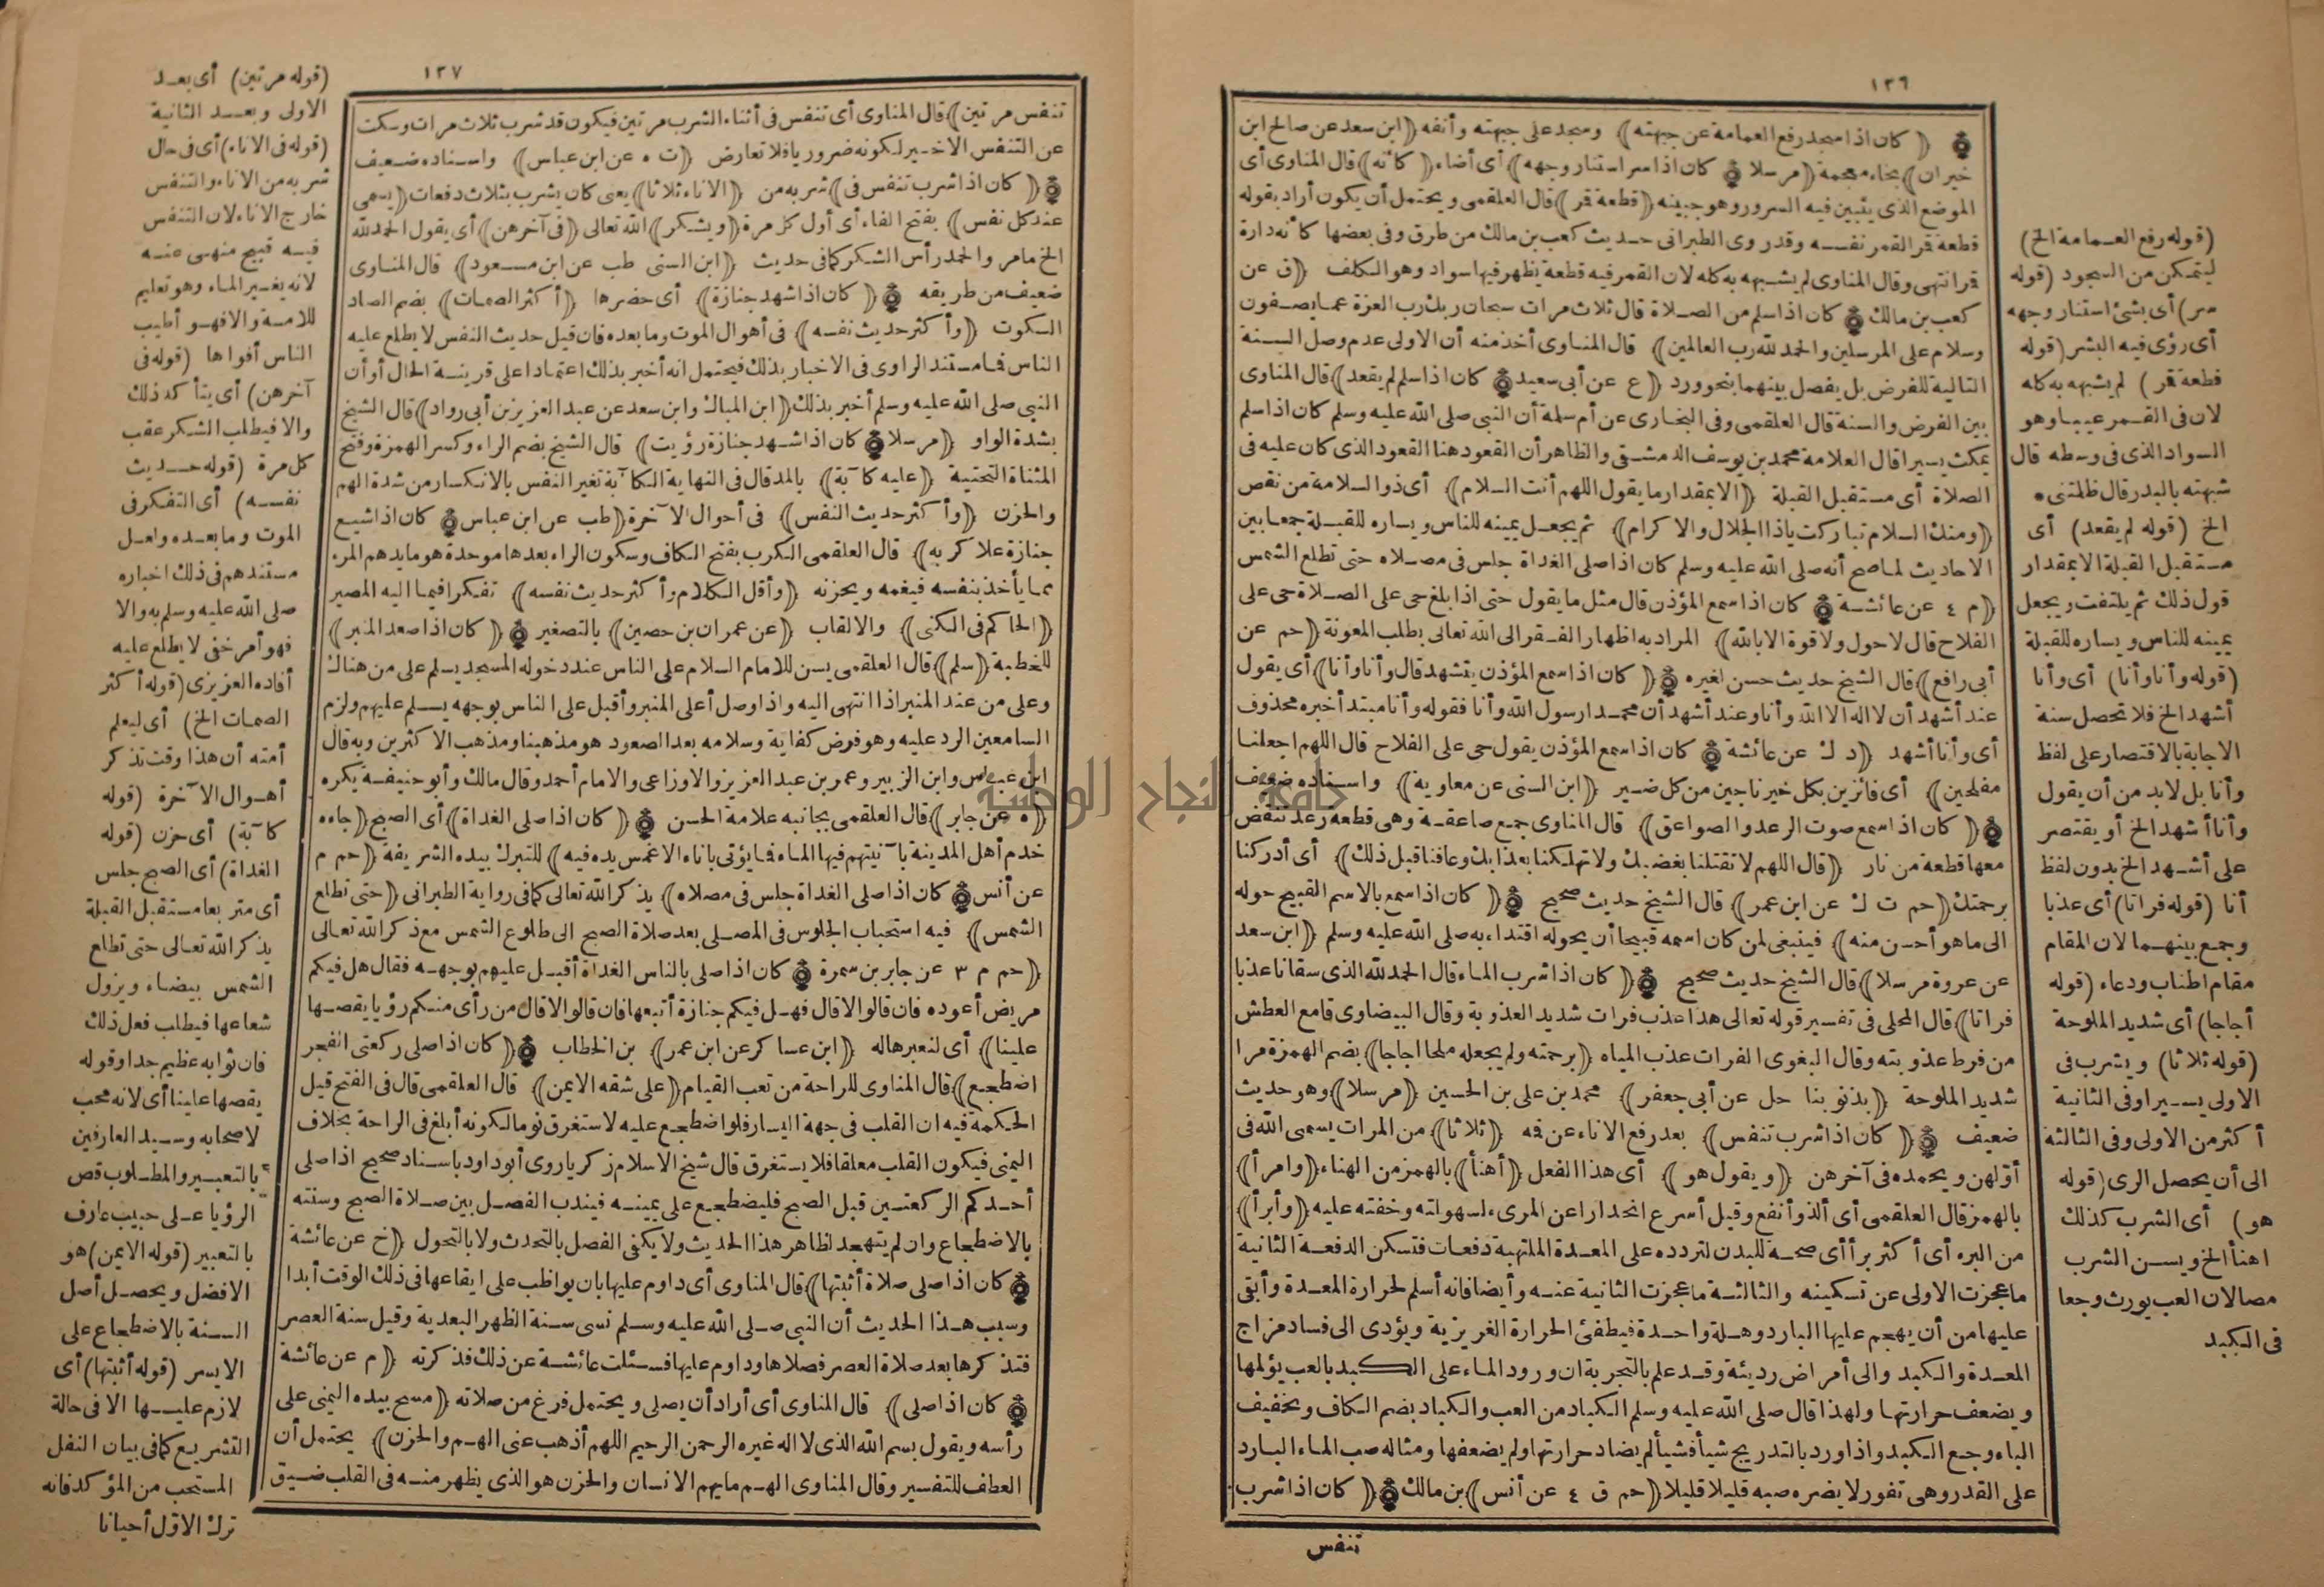 ١٣٦
﴿ كان اذا سجد رفع العمامة عن جبهته ﴾ وسجد على جبهته وأنفه ﴿ ابن سعد عن صالح ابن
خيران ﴾ بخاء معجمة ﴿ مرسلا ﴿ كان اذا سر استنار وجهه ﴾ أى أضاء ﴿ كأنه ﴾ قال المناوى أى
الموضع الذى يتبين فيه السرور وهو جبينه ﴿ قطعة قر ﴾ قال العلقمى ويحتمل أن يكون أراد بقوله
قطعة قر القمر نفسه وقدروى الطبرانى حديث كعب بن مالك من طرق وفى بعضها كأنه دارة
قر انتهى وقال المناوى لم يشبهه به كله لان القمر فيه قطعة يظهر فيها سواد وهو الكلف ﴿ ق عن
كعب بن مالك ﴿ كان اذا سلم من الصلاة قال ثلاث مرات سبحان ربك رب العزة عما يصفون
وسلام على المرسلين والحمد لله رب العالمين ﴾ قال المناوى أخذ منه أن الاولى عدم وصل السنة
التالية للفرض بل يفصل بينهما بنحو ورد ﴿ ع عن أبى سعيد ﴿ كان اذا سلم لم يقعد ﴾ قال المناوى
بين الفرض والسنة قال العلقمى وفى البخارى عن أم سلمة أن النبى صلى الله عليه وسلم كان اذا سلم
يمكث يسيرا قال العلامة محمد بن يوسف الدمشقى والظاهر أن القعود هنا القعود الذى كان عليه فى
الصلاة أى مستقبل القبلة ﴿ الا بمقدار ما يقول اللهم أنت السلام ﴾ أى ذو السلامة من نقص
﴿ ومنك السلام تباركت ياذا الجلال والاكرام ﴾ ثم يجعل يمينه للناس ويساره للقبلة جمعا بين
الاحاديث لما صح أنه صلى الله عليه وسلم كان اذا صلى الغداة جلس فى مصلاه حتى تطلع الشمس
﴿ م ٤ عن عائشة ﴿ كان اذا سمع المؤذن قال مثل ما يقول حتى اذا بلغ حى على الصلاة حى على
الفلاح قال لاحول ولا قوة الا بالله ﴾ المراد به اظهار الفقر الى الله تعالى بطلب المعونة ﴿ حم عن
أبى رافع ﴾ قال الشيخ حديث حسن لغيره ﴿ كان اذا سمع المؤذن يتشهد قال وأنا وأنا ﴾ أى يقول
عند أشهد أن لا اله الا الله وأنا وعند أشهد أن محمدا رسول الله وأنا فقوله وأنا مبتدأ خبره محذوف
أى وأنا أشهد ﴿ د ك عن عائشة ﴿ كان اذا سمع المؤذن يقول حى على الفلاح قال اللهم اجعلنا
مفلحين ﴾ أى فائزين بكل خير ناجين من كل ضير ﴿ ابن السنى عن معاوية ﴾ واسناده ضعيف
﴿ كان اذا سمع صوت الرعد والصواعق ﴾ قال المناوى جمع صاعقة وهى قطعة رعد تنقض
معها قطعة من نار ﴿ قال اللهم لا تقتلنا بغضبك ولا تهلكنا بعذابك وعافنا قبل ذلك ﴾ أى أدركنا
برحمتك ﴿ حم ت ك عن ابن عمر ﴾ قال الشيخ حديث صحيح ﴿ كان اذا سمع بالاسم القبيح حوله
الى ما هو أحسن منه ﴾ فينبغى لمن كان اسمه قبيحا أن يحوله اقتداء به صلى الله عليه وسلم ﴿ ابن سعد
عن عروة مرسلا ﴾ قال الشيخ حديث صحيح ﴿ كان اذا شرب الماء قال الحمد لله الذى سقانا عذبا
فراتا ﴾ قال المحلى فى تفسير قوله تعالى هذا عذب فرات شديد العذوبة وقال البيضاوى قامع العطش
من فرط عذوبته وقال البغوى الفرات عذب المياه ﴿ برحمته ولم يجعله ملحا اجاجا ﴾ بضم الهمزة مرا
شديد الملوحة ﴿ بذنوبنا حل عن أبى جعفر ﴾ محمد بن على بن الحسين ﴿ مرسلا ﴾ وهو حديث
ضعيف ﴿ كان اذا شرب تنفس ﴾ بعد رفع الاناء عن فه ﴿ ثلاثا ﴾ من المرات يسمى الله فى
أولهن ويحمده فى آخرهن ﴿ ويقول هو ﴾ أى هذا الفعل ﴿ أهنأ ﴾ بالهمز من الهناء ﴿ وامرأ ﴾
بالهمز قال العلقمى أى ألذ وأنفع وقيل أسرع انحدارا عن المرىء لسهولته وخفته عليه ﴿ وأبرأ ﴾
من البرء أى أكثر برأ أى صحة للبدن لتردده على المعدة الملتهبة دفعات فتسكن الدفعة الثانية
ما عجزت الاولى عن تسكينه والثالثة ما عجزت الثانية عنه وأيضا فانه أسلم لحرارة المعدة وأبقى
عليها من أن يهجم عليها البارد وهلة واحدة فيطفئ الحرارة الغريزية ويؤدى الى فساد مزاج
المعدة والكبد والى أمراض رديئة وقد علم بالتجربة ان ورود الماء على الكبد بالعب يؤلمها
ويضعف حرارتها ولهذا قال صلى الله عليه وسلم الكباد من العب والكباد بضم الكاف وتخفيف
الباء وجع الكبد واذا ورد بالتدريج شيأ فشيأ لم يضاد حرارتها ولم يضعفها ومثاله صب الماء البارد
على القدر وهى تفور لا يضره صبه قليلا قليلا ﴿ حم ق ٤ عن أنس ﴾ بن مالك ﴿ كان اذا شرب
تنفس
(قوله رفع العمامة الخ)
ليتمكن من السجود (قوله
سر) أى بشئ استنار وجهه
أى رؤى فيه البشر (قوله
قطعة قر) لم يشبهه به كله
لان فى القمر عيبا وهو
السواد الذى فى وسطه قال
شبهته بالبدر قال ظلمتنى ه
الخ (قوله لم يقعد) أى
مستقبل القبلة الا بمقدار
قول ذلك ثم يلتفت ويجعل
يمينه للناس ويساره للقبلة
(قوله وأنا وأنا) أى وأنا
أشهد الخ فلا تحصل سنة
الاجابة بالاقتصار على لفظ
وأنا بل لابد من أن يقول
وأنا أشهد الخ أو يقتصر
على أشهد الخ بدون لفظ
أنا (قوله فراتا) أى عذبا
وجمع بينهما لان المقام
مقام اطناب ودعاء (قوله
أجاجا) أى شديد الملوحة
(قوله ثلاثا) ويشرب فى
الاولى يسيرا وفى الثانية
أكثر من الاولى وفى الثالثة
الى أن يحصل الرى (قوله
هو) أى الشرب كذلك
اهنأ الخ ويسن الشرب
مصا لان العب يورث وجعا
فى الكبد
١٣٧
تنفس مرتين ﴾ قال المناوى أى تنفس فى أثناء الشرب مرتين فيكون قد شرب ثلاث مرات وسكت
عن التنفس الاخير لكونه ضروريا فلا تعارض ﴿ ت ه عن ابن عباس ﴾ واسناده ضعيف
﴿ كان اذا شرب تنفس فى ﴾ شربه من ﴿ الاناء ثلاثا ﴾ يعنى كان يشرب بثلاث دفعات ﴿ يسمى
عند كل نفس ﴾ بفتح الفاء أى أول كل مرة ﴿ ويشكر ﴾ الله تعالى ﴿ فى آخرهن ﴾ أى يقول الحمد لله
الخ ما مر والحمد رأس الشكر كما فى حديث ﴿ ابن السنى طب عن ابن مسعود ﴾ قال المناوى
ضعيف من طريقه ﴿ كان اذا شهد جنازة ﴾ أى حضرها ﴿ أكثر الصمات ﴾ بضم الصاد
السكوت ﴿ وأكثر حديث نفسه ﴾ فى أهوال الموت وما بعده فان قيل حديث النفس لا يطلع عليه
الناس فما مستند الراوى فى الاخبار بذلك فيحتمل انه أخبر بذلك اعتمادا على قرينة الحال أو أن
النبى صلى الله عليه وسلم أخبر بذلك ﴿ ابن المبارك وابن سعد عن عبد العزيز بن أبى رواد ﴾ قال الشيخ
بشدة الواو ﴿ مرسلا ﴿ كان اذا شهد جنازة رؤيت ﴾ قال الشيخ بضم الراء وكسر الهمزة وفتح
المثناة التحتية ﴿ عليه كآبة ﴾ بالمد قال فى النهاية الكآبة تغير النفس بالانكسار من شدة الهم
والحزن ﴿ وأكثر حديث النفس ﴾ فى أحوال الآخرة ﴿ طب عن ابن عباس ﴿ كان اذا شيع
جنازة علا كربه ﴾ قال العلقمى الكرب بفتح الكاف وسكون الراء بعدها موحدة هو ما يدهم المرء
مما يأخذ بنفسه فيغمه ويحزنه ﴿ وأقل الكلام وأكثر حديث نفسه ﴾ تفكرا فيما اليه المصير
﴿ الحاكم فى الكنى ﴾ والالقاب ﴿ عن عمران بن حصين ﴾ بالتصغير ﴿ كان اذا صعد المنبر ﴾
للخطبة ﴿ سلم ﴾ قال العلقمى يسن للامام السلام على الناس عند دخوله المسجد يسلم على من هناك
وعلى من عند المنبر اذا انتهى اليه واذا وصل أعلى المنبر وأقبل على الناس بوجهه يسلم عليهم ولزم
السامعين الرد عليه وهو فرض كفاية وسلامه بعد الصعود هو مذهبنا ومذهب الاكثرين وبه قال
ابن عباس وابن الزبير وعمر بن عبد العزيز والاوزاعى والامام أحمد وقال مالك وأبو حنيفة يكره
﴿ ه عن جابر ﴾ قال العلقمى بجانبه علامة الحسن ﴿ كان اذا صلى الغداة ﴾ أى الصبح ﴿ جاءه
خدم أهل المدينة بآنيتهم فيها الماء فما يؤتى باناء الا غمس يده فيه ﴾ للتبرك بيده الشريفة ﴿ حم م
عن أنس ﴿ كان اذا صلى الغداة جلس فى مصلاه ﴾ يذكر الله تعالى كما فى رواية الطبرانى ﴿ حتى تطلع
الشمس ﴾ فيه استحباب الجلوس فى المصلى بعد صلاة الصبح الى طلوع الشمس مع ذكر الله تعالى
﴿ حم م ٣ عن جابر بن سمرة ﴿ كان اذا صلى بالناس الغداة أقبل عليهم بوجهه فقال هل فيكم
مريض أعوده فان قالوا لا قال فهل فيكم جنازة أتبعها فان قالوا لا قال من رأى منكم رؤيا يقصها
علينا ﴾ أى لنعبرها له ﴿ ابن عساكر عن ابن عمر ﴾ بن الخطاب ﴿ كان اذا صلى ركعتى الفجر
اضطجع ﴾ قال المناوى للراحة من تعب القيام ﴿ على شقه الايمن ﴾ قال العلقمى قال فى الفتح قيل
الحكمة فيه ان القلب فى جهة اليسار فلو اضطجع عليه لاستغرق نوما لكونه أبلغ فى الراحة بخلاف
اليمنى فيكون القلب معلقا فلا يستغرق قال شيخ الاسلام زكريا روى أبو داود باسناد صحيح اذا صلى
أحدكم الركعتين قبل الصبح فليضطجع على يمينه فيندب الفصل بين صلاة الصبح وسنته
بالاضطجاع وان لم يتهجد لظاهر هذا الحديث ولا يكفى الفصل بالتحدث ولا بالتحول ﴿ خ عن عائشة
﴿ كان اذا صلى صلاة أثبتها ﴾ قال المناوى أى داوم عليها بان يواظب على ايقاعها فى ذلك الوقت أبدا
وسبب هذا الحديث أن النبى صلى الله عليه وسلم نسى سنة الظهر البعدية وقيل سنة العصر
فتذكرها بعد صلاة العصر فصلاها وداوم عليها فسئلت عائشة عن ذلك فذكرته ﴿ م عن عائشة
﴿ كان اذا صلى ﴾ قال المناوى أى أراد أن يصلى ويحتمل فرغ من صلاته ﴿ مسح بيده اليمنى على
رأسه ويقول بسم الله الذى لا اله غيره الرحمن الرحيم اللهم أذهب عنى الهم والحزن ﴾ يحتمل أن
العطف للتفسير وقال المناوى الهم ما يهم الانسان والحزن هو الذى يظهر منه فى القلب ضيق
(قوله مرتين) أى بعد
الاولى وبعد الثانية
(قوله فى الاناء) أى فى حال
شربه من الاناء والتنفس
خارج الاناء لان التنفس
فيه قبيح منهى عنه
لانه يغير الماء وهو تعليم
للامة والا فهو أطيب
الناس أفواها (قوله فى
آخرهن) أى يتأكد ذلك
والا فيطلب الشكر عقب
كل مرة (قوله حديث
نفسه) أى التفكر فى
الموت وما بعده ولعل
مستندهم فى ذلك اخباره
صلى الله عليه وسلم به والا
فهو أمر خفى لا يطلع عليه
أفاده العزيزى (قوله أكثر
الصمات الخ) أى ليعلم
أمته أن هذا وقت تذكر
أهوال الآخرة (قوله
كآبة) أى حزن (قوله
الغداة) أى الصبح جلس
أى متربعا مستقبل القبلة
يذكر الله تعالى حتى تطلع
الشمس بيضاء ويزول
شعاعها فيطلب فعل ذلك
فان ثوابه عظيم جدا وقوله
يقصها علينا أى لانه محب
لاصحابه وسيد العارفين
بالتعبير والمطلوب قص
الرؤيا على حبيب عارف
بالتعبير (قوله الايمن) هو
الافضل ويحصل أصل
السنة بالاضطجاع على
الايسر (قوله أثبتها) أى
لازم عليها الا فى حالة
التشريع كما فى بيان النفل
المستحب من المؤكد فانه
ترك الاول أحيانا
جامعة النجاح الوطنية